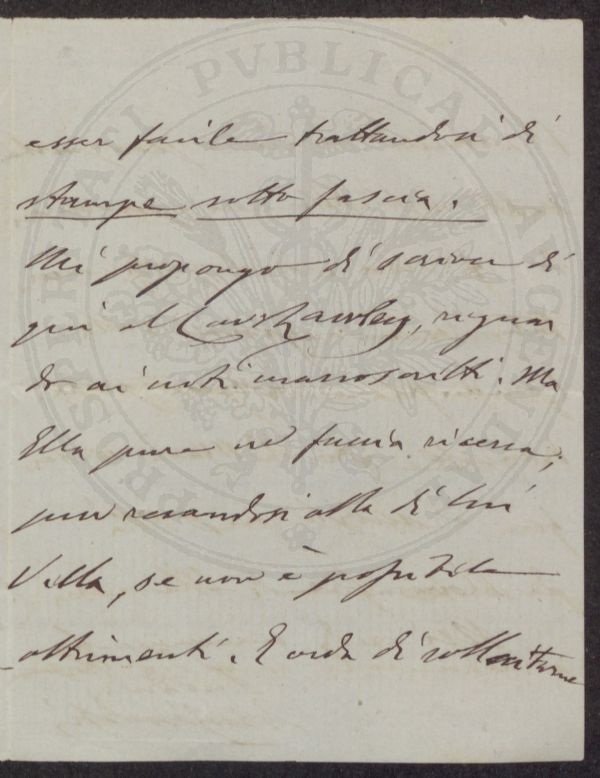 esser facile trattandosi di
stampe sotto fascia.
Mi propongo di scriver di
qui al Cav., riguar
do ai noti manoscritti. Ma
Ella pure ne faccia ricerca,
pur recandosi alla di Lui
Villa, se non è possibile
altrimenti. E veda di
PROSPERITATI PVBLICAE AVGENDAE